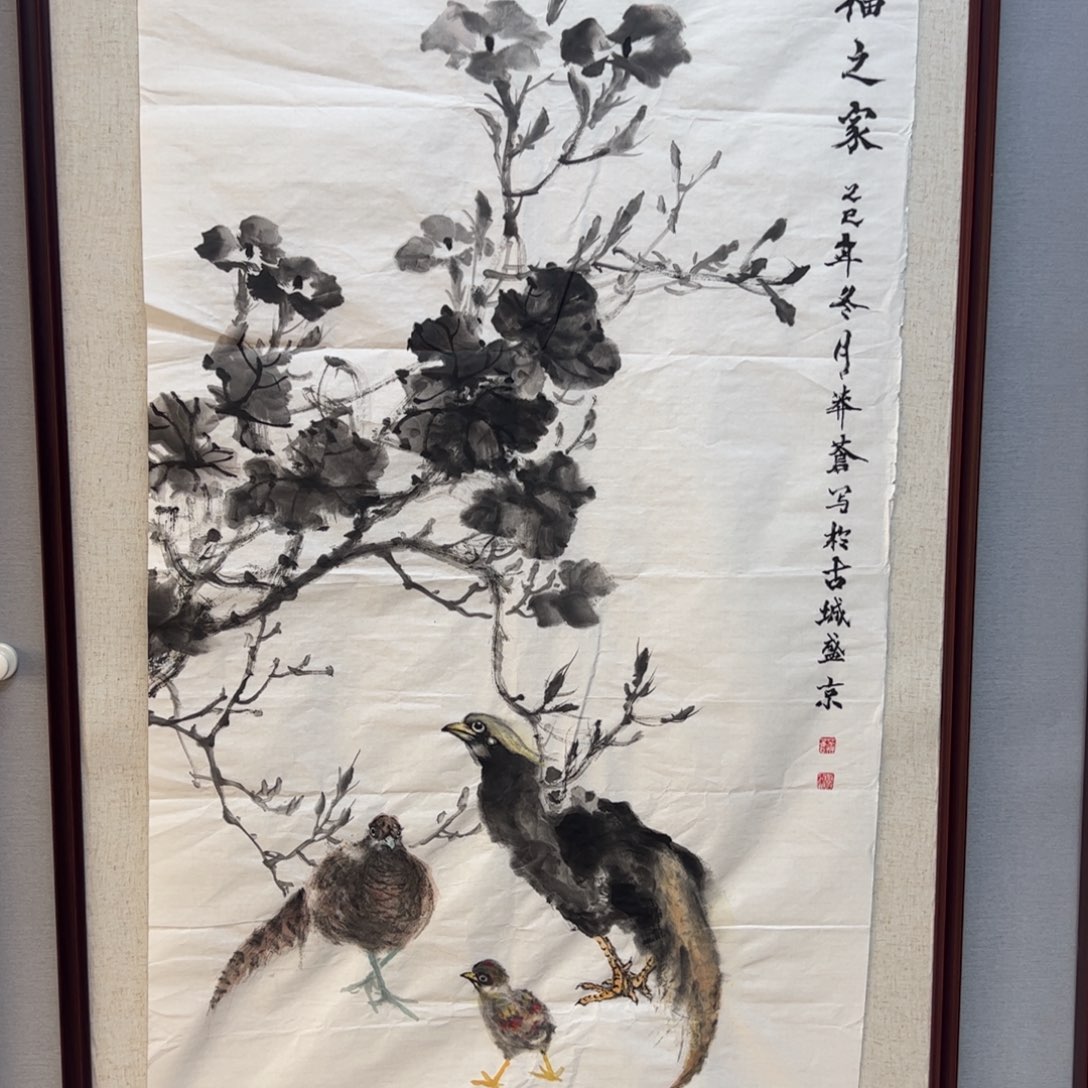 福之家 乙巳年冬月莽蒼写於古城盛京